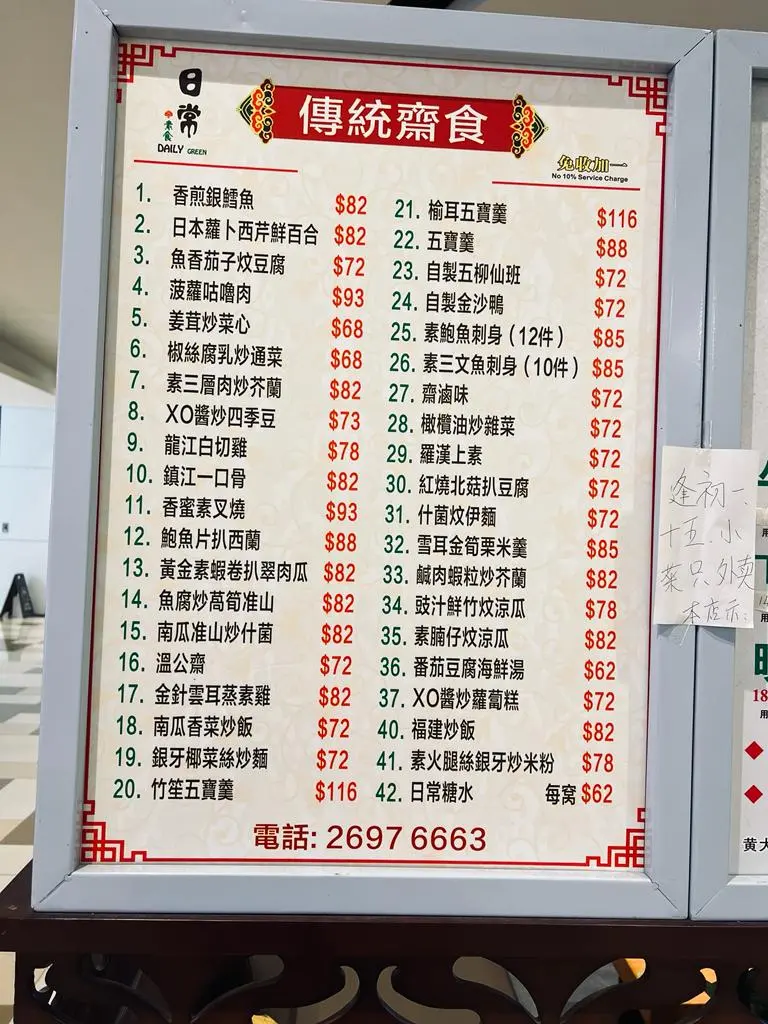 日常
素食
DAILY GREEN
傳統齋食
免收加一
No 10% Service Charge
1. 香煎銀鱈魚 $82
2. 日本蘿卜西芹鮮百合 $82
3. 魚香茄子炆豆腐 $72
4. 菠蘿咕嚕肉 $93
5. 姜茸炒菜心 $68
6. 椒絲腐乳炒通菜 $68
7. 素三層肉炒芥蘭 $82
8. XO醬炒四季豆 $73
9. 龍江白切雞 $78
10. 鎮江一口骨 $82
11. 香蜜素叉燒 $93
12. 鮑魚片扒西蘭 $88
13. 黃金素蝦卷扒翠肉瓜 $82
14. 魚腐炒萵筍准山 $82
15. 南瓜准山炒什菌 $82
16. 溫公齋 $72
17. 金針雲耳蒸素雞 $82
18. 南瓜香菜炒飯 $72
19. 銀牙椰菜絲炒麵 $72
20. 竹笙五寶羹 $116
21. 榆耳五寶羹 $116
22. 五寶羹 $88
23. 自製五柳仙班 $72
24. 自製金沙鴨 $72
25. 素鮑魚刺身（12件） $85
26. 素三文魚刺身（10件） $85
27. 齋滷味 $72
28. 橄欖油炒雜菜 $72
29. 羅漢上素 $72
30. 紅燒北菇扒豆腐 $72
31. 什菌炆伊麵 $72
32. 雪耳金筍栗米羹 $85
33. 鹹肉蝦粒炒芥蘭 $82
34. 豉汁鮮竹炆涼瓜 $78
35. 素腩仔炆涼瓜 $82
36. 番茄豆腐海鮮湯 $62
37. XO醬炒蘿蔔糕 $72
40. 福建炒飯 $82
41. 素火腿絲銀牙炒米粉 $78
42. 日常糖水 每窝 $62
電話: 2697 6663
逢初一、
十五.小
菜只外卖
本店示:
18
用
黄大